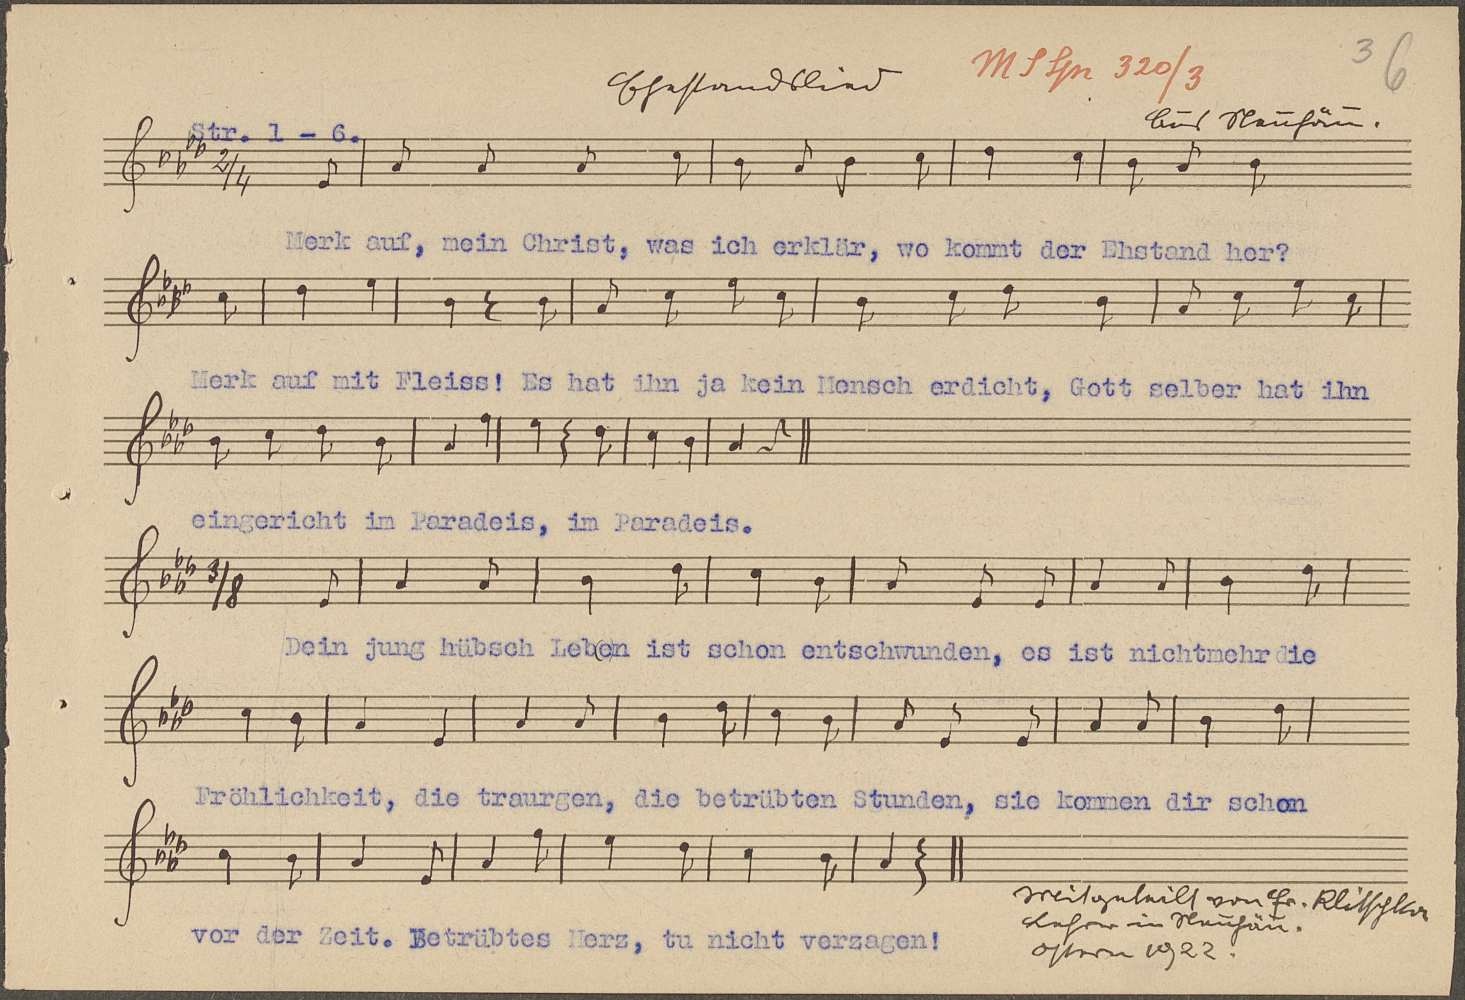 MS Spr 320/3
3 6
Ehestandslied
Aus Neuhäu.
Str. 1 - 6.
2/4
Merk auf, mein Christ, was ich erklär, wo kommt der Ehstand her?
Merk auf mit Fleiss! Es hat ihn ja kein Mensch erdicht, Gott selber hat ihn
eingericht im Paradeis, im Paradeis.
3/8
Dein jung hübsch Leben ist schon entschwunden, es ist nichtmehr die
Fröhlichkeit, die traurgen, die betrübten Stunden, sie kommen dir schon
vor der Zeit. Betrübtes Herz, tu nicht verzagen!
Mitgeteilt von Fr. Klitschka
Lehrer in Neuhäu.
Ostern 1922.